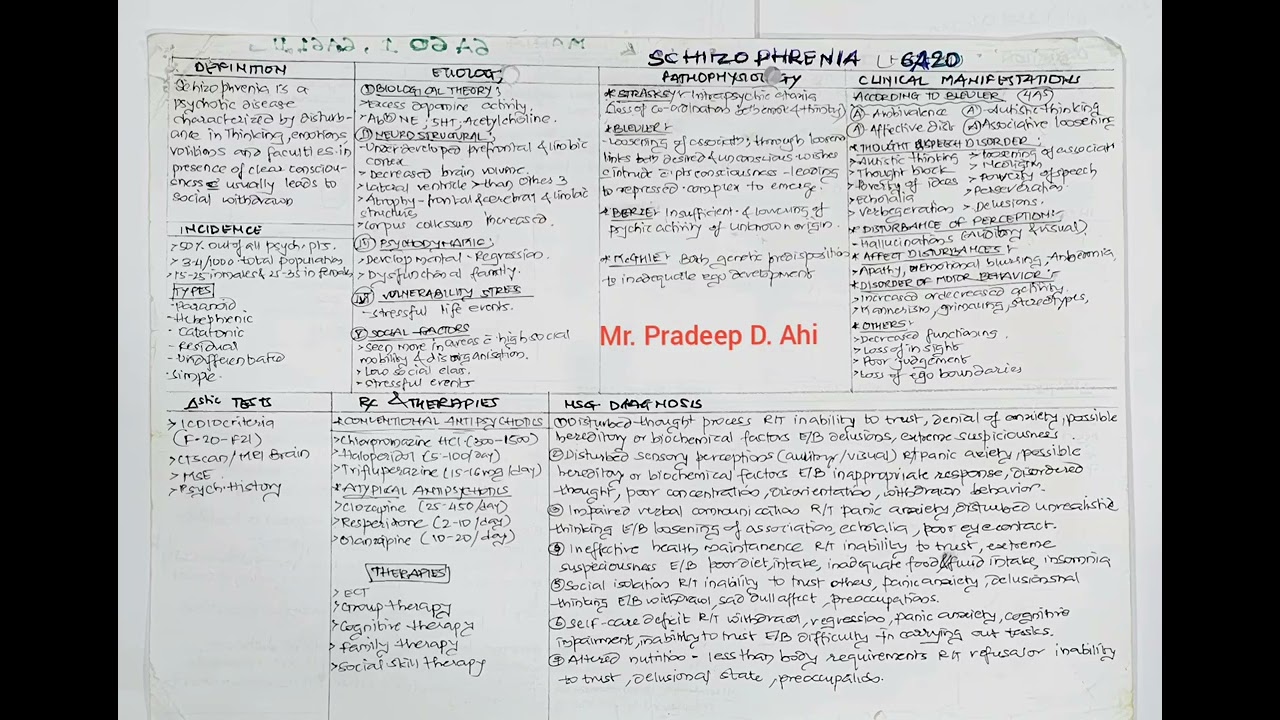 SCHIZOPHRENIA 6A20
DEFINITION
Schizophrenia is a
psychotic disease
characterized by disturb-
ance in thinking, emotions
volitions and faculties in
presence of clear consciou-
sness c usually leads to
social withdrawn
INCIDENCE
> 50% out of all psych. pts.
> 3-4/1000 total population
> 15-25 in males & 25-35 in females
TYPES
- Paranoid
- Hebephrenic
- Catatonic
- Residual
- Undifferentiated
- Simple
ETIOLOGY
I) BIOLOGICAL THEORY:
> Excess dopamine activity.
> Abn NE, 5HT, Acetylcholine.
II) NEUROSTRUCTURAL:
- Underdeveloped prefrontal & limbic
cortex
> Decreased brain volume.
> Lateral ventricle > than others 3
> Atrophy - frontal & cerebral & limbic
structure
> Corpus collesum increased.
PSYCHODYNAMIC:
> Developmental - Regression.
> Dysfunctional family.
VULNERABILITY STRESS
- Stressful life events.
V) SOCIAL FACTORS
- Seen more in areas c high social
mobility & disorganisation.
> Low social class.
> Stressful events
PATHOPHYSIOLOGY
* Intrapsychic ataxia
(Loss of co-ordination betn emotn & thinking)
* BLEULER:
- Loosening of associatn; through loosened
links both desired & unconscious wishes
intrude pts consciousness - leading
to repressed complex to emerge.
* BERZE: Insufficient & lowering of
psychic activity of unknown origin.
* McGHIE: Both genetic predisposition
to inadequate ego development
Mr. Pradeep D. Ahi
CLINICAL MANIFESTATIONS
ACCORDING TO BLEULER (4A'S)
A Ambivalence A Autistic thinking
A Affective dist A Associative loosening
* THOUGHT & SPEECH DISORDER:
> Autistic thinking > Loosening of associatn
> Thought block > Neologism
> Poverty of ideas > Poverty of speech
> Echolalia > Perseveration
> Verbegeration > Delusions.
* DISTURBANCE OF PERCEPTION:
- Hallucinations (auditory & visual)
* AFFECT DISTURBANCES:
> Apathy, emotional blunting, Anhedonia,
* DISORDER OF MOTOR BEHAVIOR:
> Increased or decreased activity
> Mannerism, grimacing, stereotypes,
* OTHERS:
> Decreased functioning
> Loss of insight
> Poor judgement
> Loss of ego boundaries
TESTS
> ICD10 criteria
(F-20-F21)
> CT scan/MRI Brain
> MSE
> Psych. History
Rx & THERAPIES
* CONVENTIONAL ANTIPSYCHOTICS
> Chlorpromazine HCl (300-1500)
> Haloperidol (5-100/day)
> Trifluperazine (15-16mg/day)
* ATYPICAL ANTIPSYCHOTICS
> Clozapine (25-450/day)
> Resperidone (2-10/day)
> Olanzapine (10-20/day)
THERAPIES
> ECT
> Group therapy
> Cognitive therapy
> Family therapy
> Social skill therapy
NSG DIAGNOSIS
① Disturbed thought process R/T inability to trust, denial of anxiety, possible
hereditory or biochemical factors E/B delusions, extreme suspiciousness.
② Disturbed sensory perceptions (auditory/visual) R/T panic anxiety, possible
hereditory or biochemical factors E/B inappropriate response, disordered
thought, poor concentration, disorientation, withdrawn behavior.
③ Impaired verbal communication R/T panic anxiety, disturbed unrealistic
thinking E/B loosening of association, echolalia, poor eye contact.
④ Ineffective health maintanence R/T inability to trust, extreme
suspeciousness E/B poor diet, intake, inadequate food & fluid intake, insomnia
⑤ Social isolation R/T inability to trust others, panic anxiety, delusional
thinking E/B withdrawl, sad dull affect, preoccupations.
⑥ Self-care deficit R/T withdrawl, regression, panic anxiety, cognitive
impairment, inability to trust E/B difficulty in carrying out tasks.
⑦ Altered nutrition - less than body requirements R/T refusal or inability
to trust, delusional state,